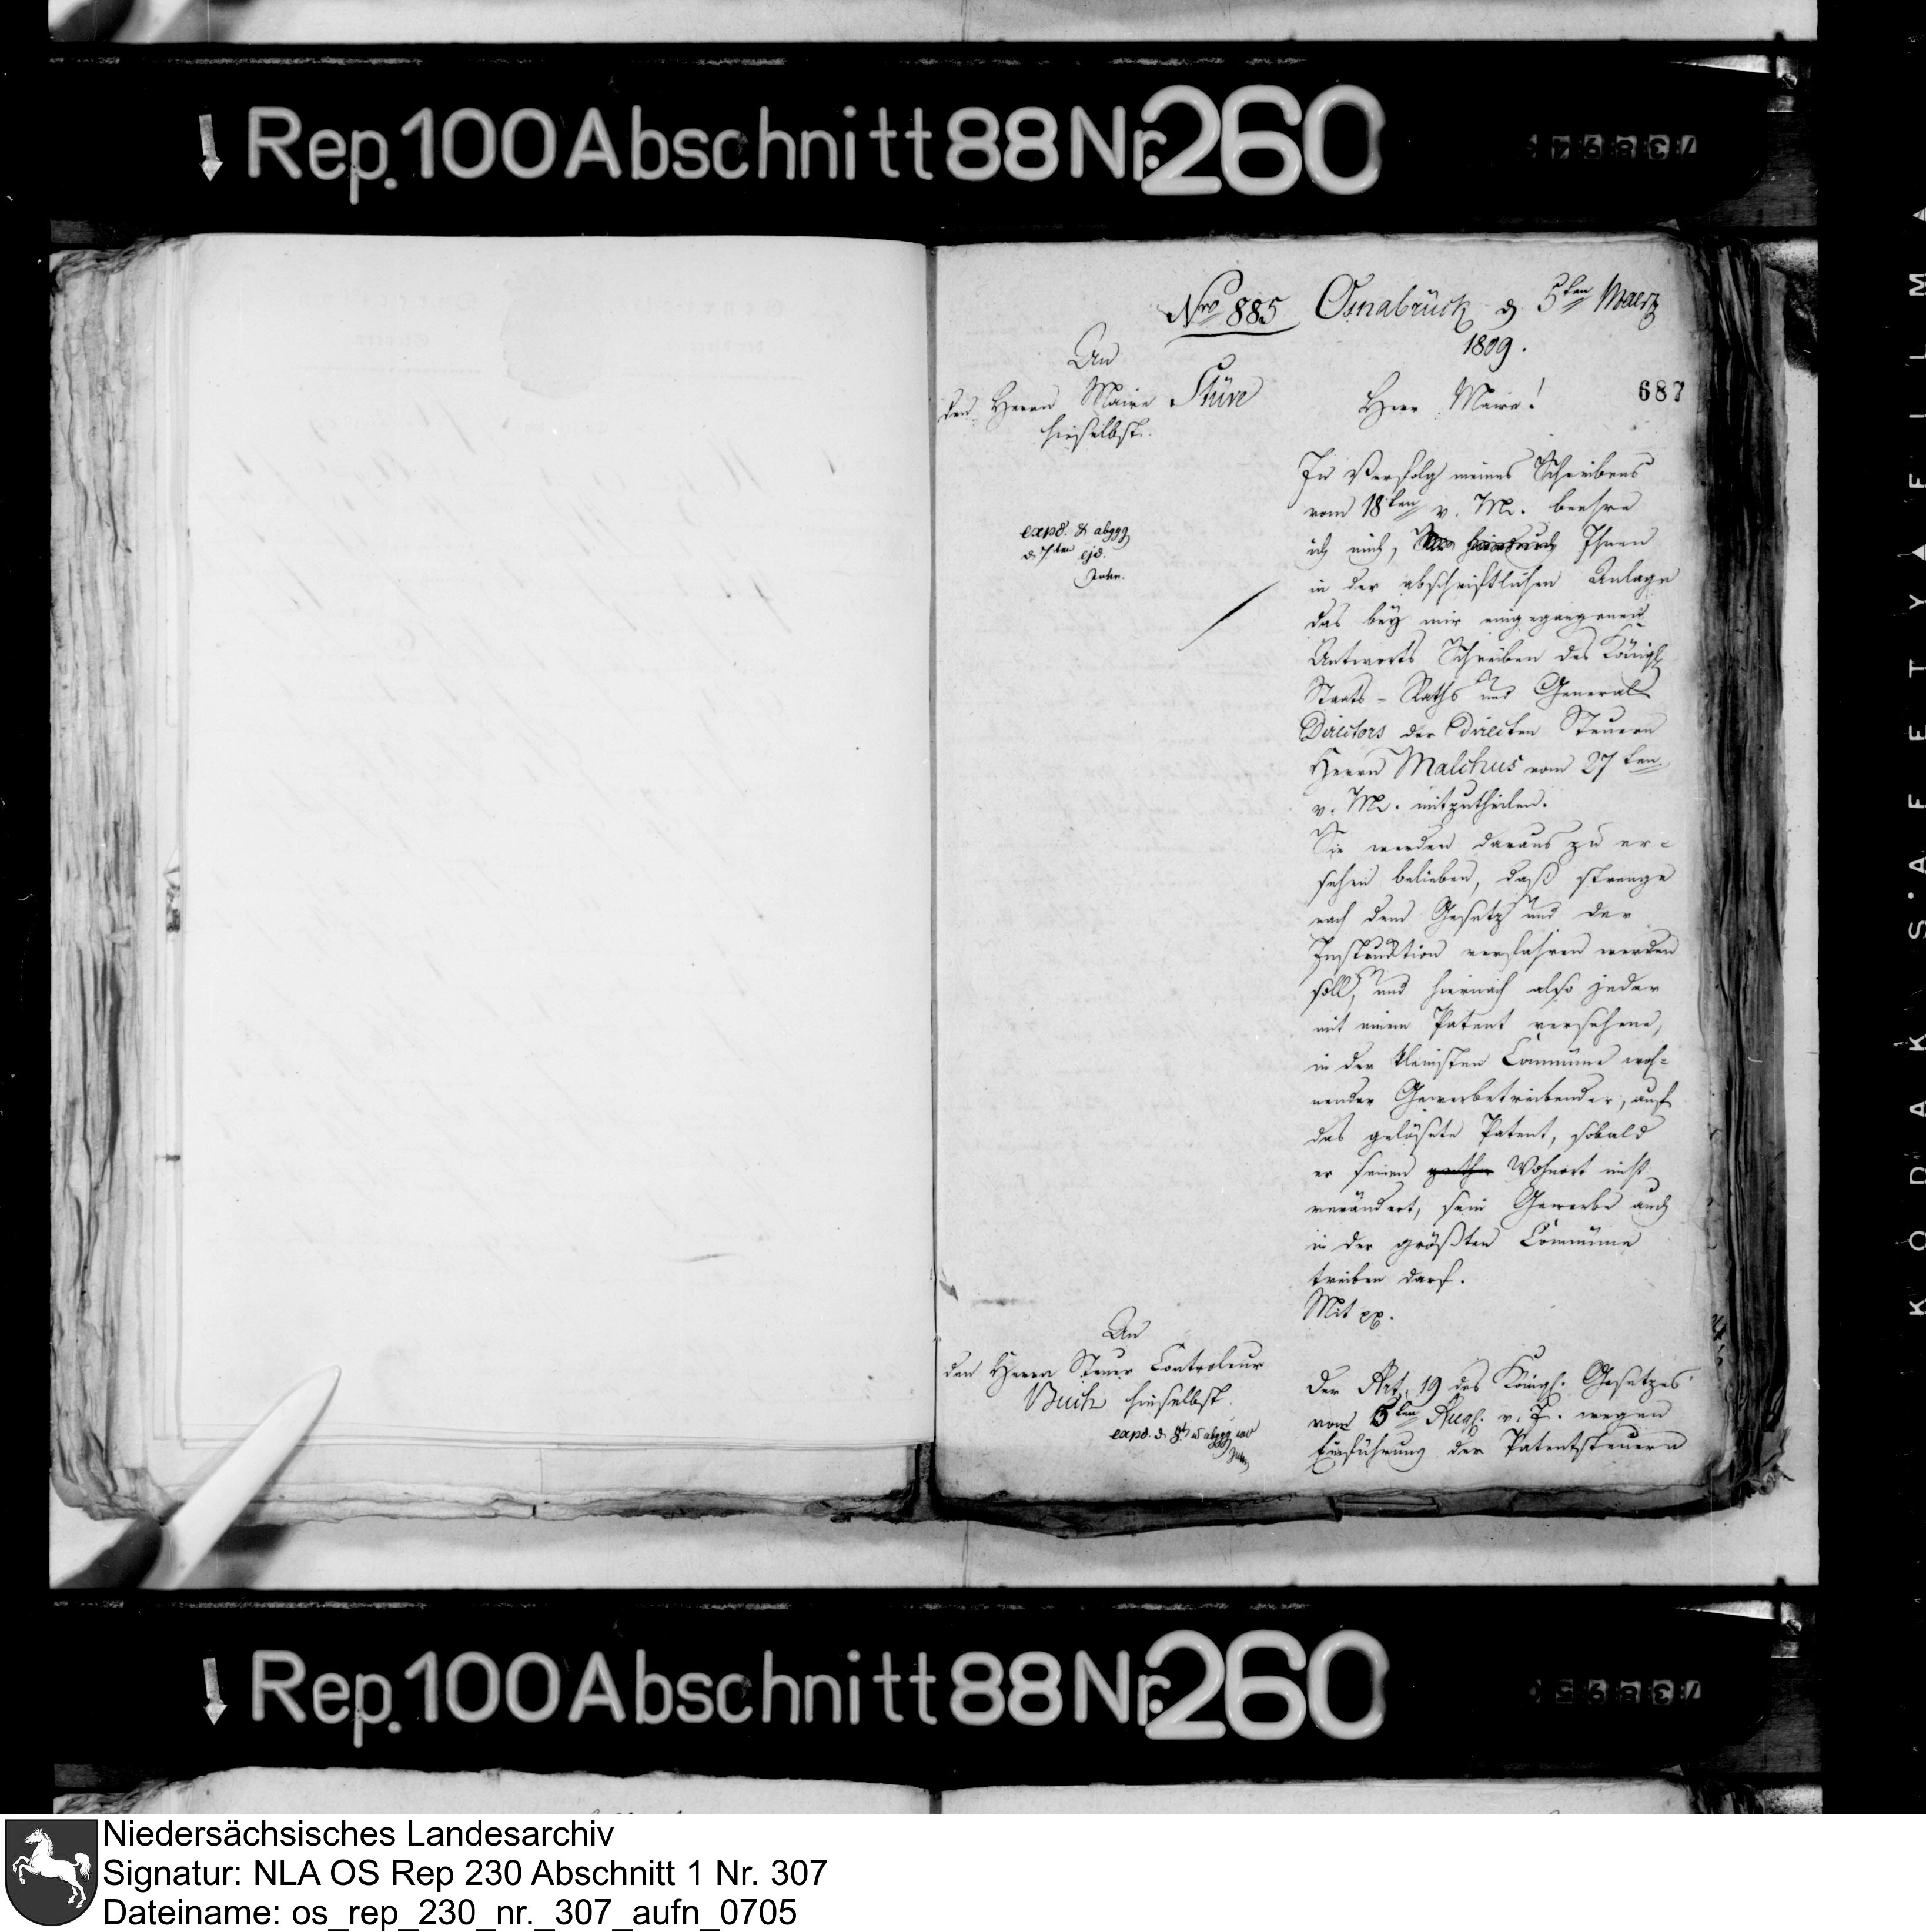 Rep. 100 Abschnitt 88 Nr. 260
Nro 885 Osnabrück d 5ten Maerz
1809.
687
An
den Herrn Maire Stüve
hieselbst.
expd. & abggg
d 7ten ejd.
Herr Maire!
In Verfolg meines Schreibens
vom 18ten v. M. beehre
ich mich, Ihnen
in der abschriftlichen Anlage
das bey mir eingegangene
Antworts Schreiben des Königl
Staats-Raths und General
Directors der directen Steuern
Herrn Malchus vom 27ten
v. M. mitzutheilen.
Sie werden daraus zu er=
sehen belieben, daß strenge
nach dem Gesetz und der
Instruktion verfahren werden
soll, und hiernach also jeder
mit einem Patent versehene,
in der kleinsten Commüne woh=
nender Gewerbetreibender, auf
das gelösete Patent, sobald
er seinen Wohnort nicht
verändert, sein Gewerbe auch
in der größten Commüne
treiben darf.
Mit pp.
An
den Herrn Steuer Controleur
Buch hieselbst.
expd. d. 8t
Der Art. 19 des Königl. Gesetzes
vom 5ten Aug. v. J. wegen
Einführung der Patentsteuern
Rep. 100 Abschnitt 88 Nr. 260
KODAK SAFETY FILM
Niedersächsisches Landesarchiv
Signatur: NLA OS Rep 230 Abschnitt 1 Nr. 307
Dateiname: os_rep_230_nr._307_aufn_0705